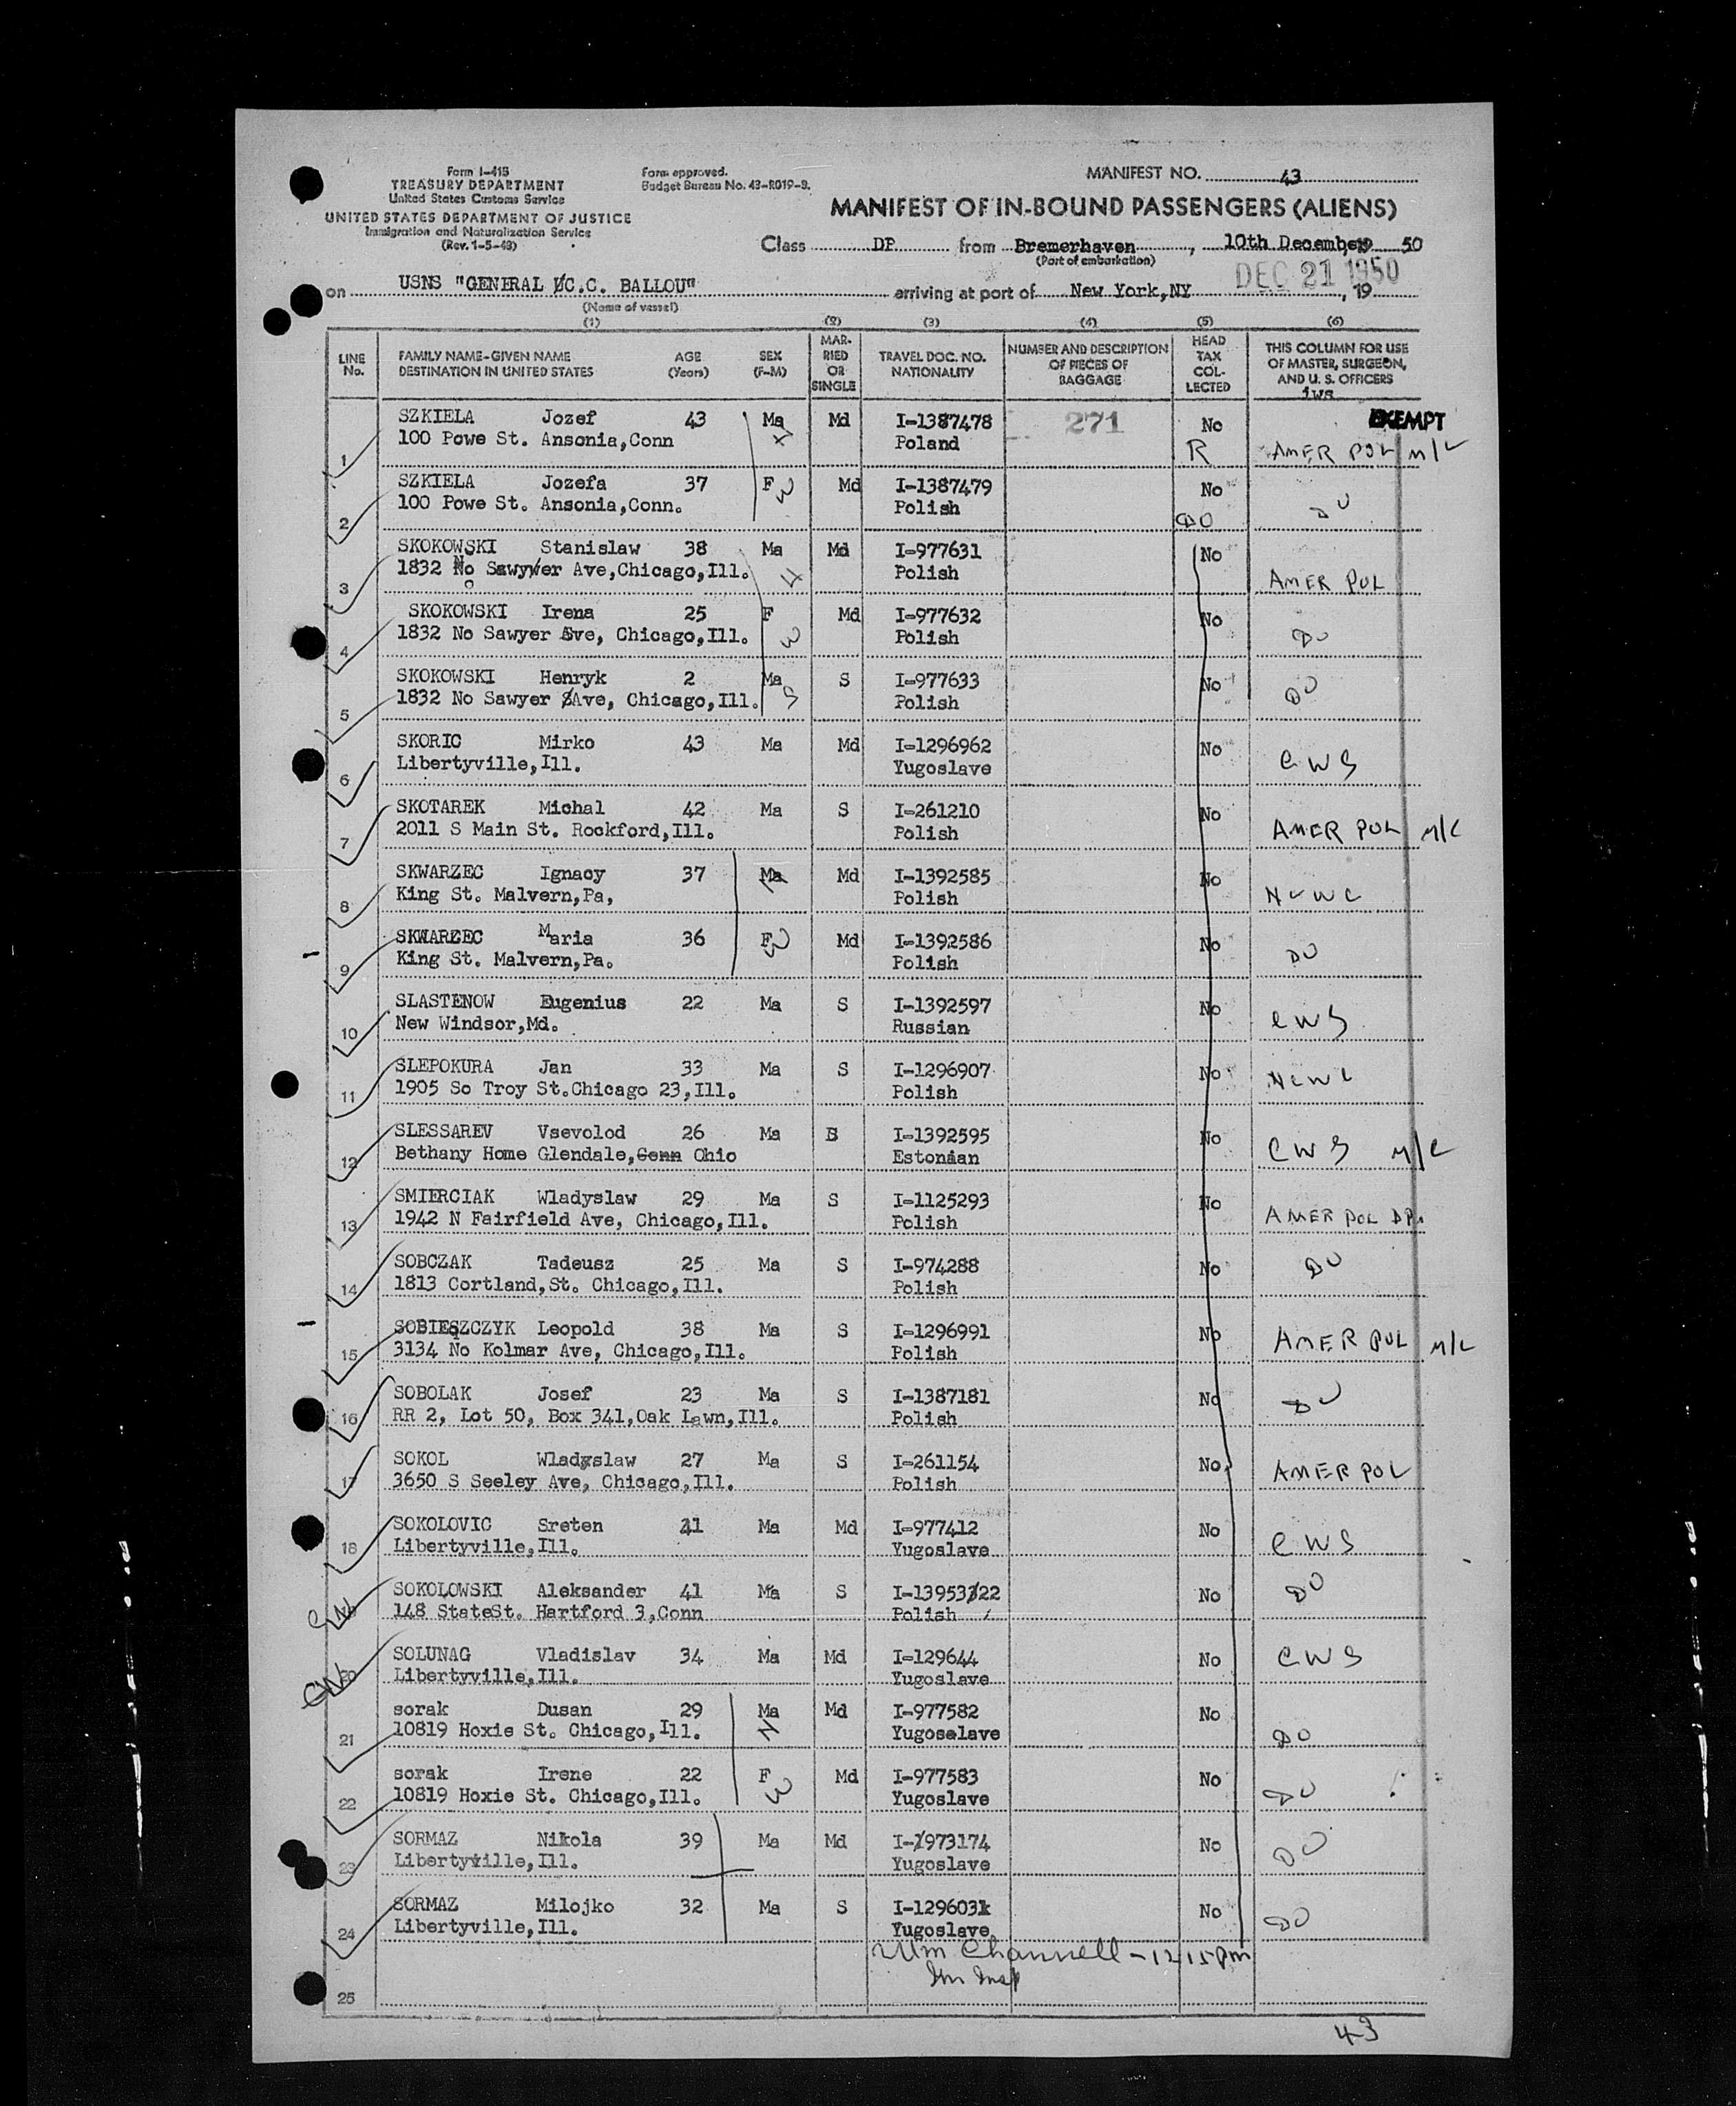 Form I-415
TREASURY DEPARTMENT
United States Customs Service
UNITED STATES DEPARTMENT OF JUSTICE
Immigration and Naturalization Service
(Rev. 1-5-48)
Form approved.
Budget Bureau No. 43-R019-3.
MANIFEST NO. 43
MANIFEST OF IN-BOUND PASSENGERS (ALIENS)
Class DP from Bremerhaven, 10th December 19 50
(Port of embarkation)
DEC 21 1950
on USNS "GENERAL C.C. BALLOU" arriving at port of New York, NY, 19
(Name of vessel)
(1) (2) (3) (4) (5) (6)
LINE No. FAMILY NAME-GIVEN NAME DESTINATION IN UNITED STATES AGE (Years) SEX (F-M) MARRIED OR SINGLE TRAVEL DOC. NO. NATIONALITY NUMBER AND DESCRIPTION OF PIECES OF BAGGAGE HEAD TAX COLLECTED THIS COLUMN FOR USE OF MASTER, SURGEON, AND U. S. OFFICERS
iws
EXEMPT
SZKIELA Jozef 43 Ma Md I-1387478 271 No
1 100 Powe St. Ansonia,Conn Poland R AMER POL M/C
SZKIELA Jozefa 37 F Md I-1387479 No
2 100 Powe St. Ansonia,Conn. Polish DO DO
SKOKOWSKI Stanislaw 38 Ma Md I-977631 No
3 1832 No Sawyer Ave,Chicago,Ill. Polish AMER POL
SKOKOWSKI Irena 25 F Md I-977632 No
4 1832 No Sawyer Ave, Chicago,Ill. Polish DO
SKOKOWSKI Henryk 2 Ma S I-977633 No
5 1832 No Sawyer Ave, Chicago,Ill. Polish DO
SKORIC Mirko 43 Ma Md I-1296962 No
6 Libertyville,Ill. Yugoslave CWS
SKOTAREK Michal 42 Ma S I-261210 No
7 2011 S Main St. Rockford,Ill. Polish AMER POL M/C
SKWARZEC Ignacy 37 Ma Md I-1392585 No
8 King St. Malvern,Pa, Polish NCWC
SKWARZEC Maria 36 F Md I-1392586 No
9 King St. Malvern,Pa. Polish DO
SLASTENOW Eugenius 22 Ma S I-1392597 No
10 New Windsor,Md. Russian CWS
SLEPOKURA Jan 33 Ma S I-1296907 No
11 1905 So Troy St.Chicago 23,Ill. Polish NCWC
SLESSAREV Vsevolod 26 Ma I-1392595 No
12 Bethany Home Glendale,Conn Ohio Estonian CWS M/C
SMIERCIAK Wladyslaw 29 Ma S I-1125293 No
13 1942 N Fairfield Ave, Chicago,Ill. Polish AMER POL DP.
SOBCZAK Tadeusz 25 Ma S I-974288 No
14 1813 Cortland,St. Chicago,Ill. Polish DO
SOBIESZCZYK Leopold 38 Ma S I-1296991 No
15 3134 No Kolmar Ave, Chicago,Ill. Polish AMER POL M/C
SOBOLAK Josef 23 Ma S I-1387181 No
16 RR 2, Lot 50, Box 341,Oak Lawn,Ill. Polish DO
SOKOL Wladyslaw 27 Ma S I-261154 No
17 3650 S Seeley Ave, Chicago,Ill. Polish AMER POL
SOKOLOVIC Sreten Ma Md I-977412 No
18 Libertyville,Ill. Yugoslave CWS
SOKOLOWSKI Aleksander 41 Ma S No DO
148 StateSt. Hartford 3,Conn Polish
SOLUNAG Vladislav 34 Ma Md I-129644 No CWS
20 Libertyville,Ill. Yugoslave
sorak Dusan 29 Ma Md I-977582 No
21 10819 Hoxie St. Chicago,Ill. Yugoselave DO
sorak Irene 22 F Md I-977583 No
22 10819 Hoxie St. Chicago,Ill. Yugoslave DO
SORMAZ Nikola 39 Ma Md I-973174 No
23 Libertyville,Ill. Yugoslave DO
SORMAZ Milojko 32 Ma S No
24 Libertyville,Ill. Yugoslave DO
Wm Channell - 12 15 pm
Im Insp
25
43